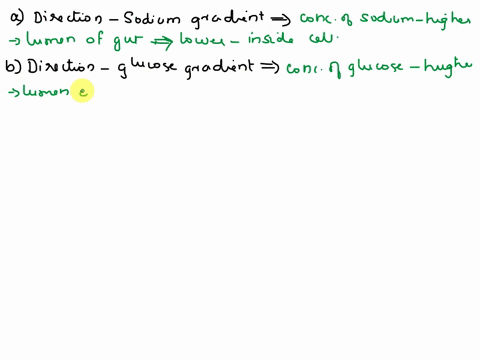 a) Direction - Sodium gradient ⇒ conc. of sodium - higher
→ lumen of gut ⇒ lower - inside cell.
b) Direction - glucose gradient ⇒ conc. of glucose - higher
→ lumen e